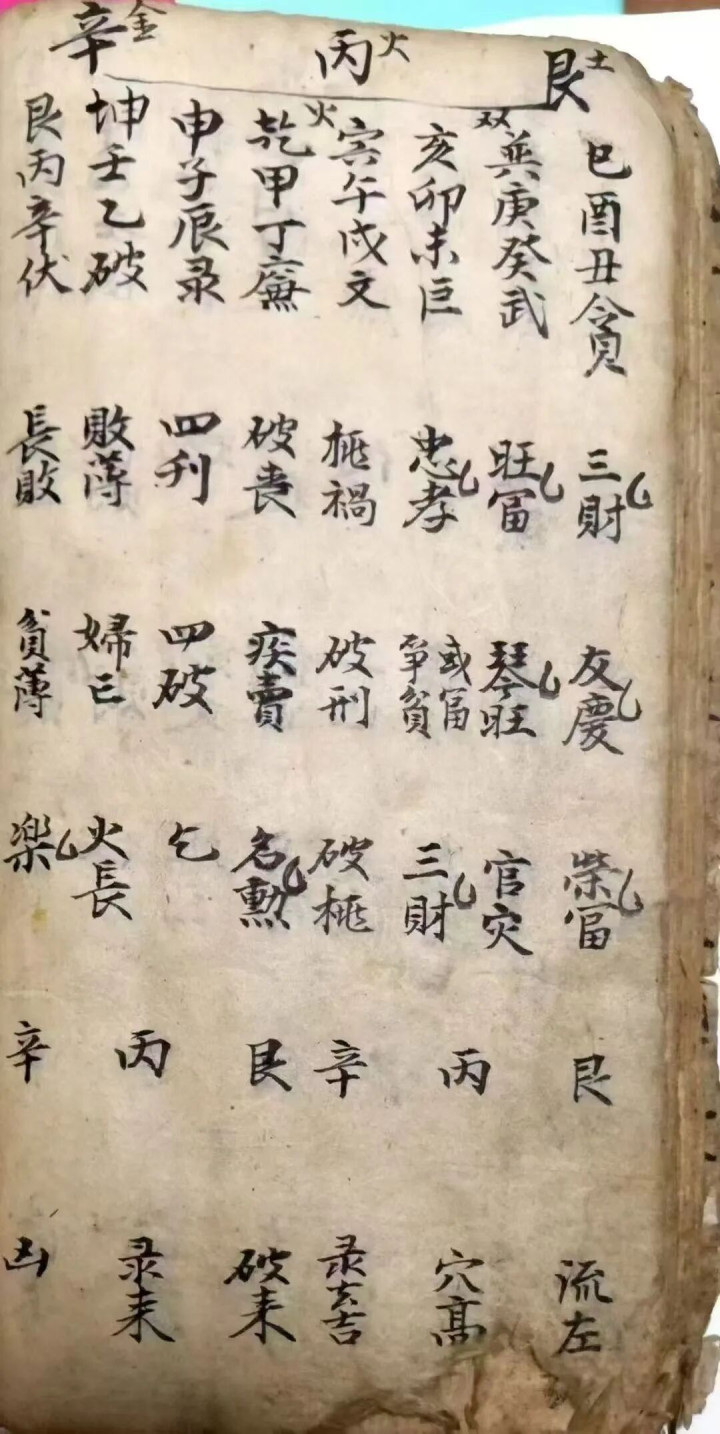 艮土
丙火
辛金
巳酉丑貪 三財 友慶 榮冨 艮 流左
双 巽庚癸武 旺冨 琴旺 官灾
亥卯未巨 忠孝 或冨爭貧 三財 丙 穴髙
火 寅午戌文 禍 破刑 破 辛 录去吉
乾甲丁廉 破喪 疾賣 名勲 艮 破耒
申子辰录 四刋 四破 乞
坤壬乙破 敗薄 婦亡 火長 丙 录耒
艮丙辛伏 長敗 貧薄 楽 辛 凶